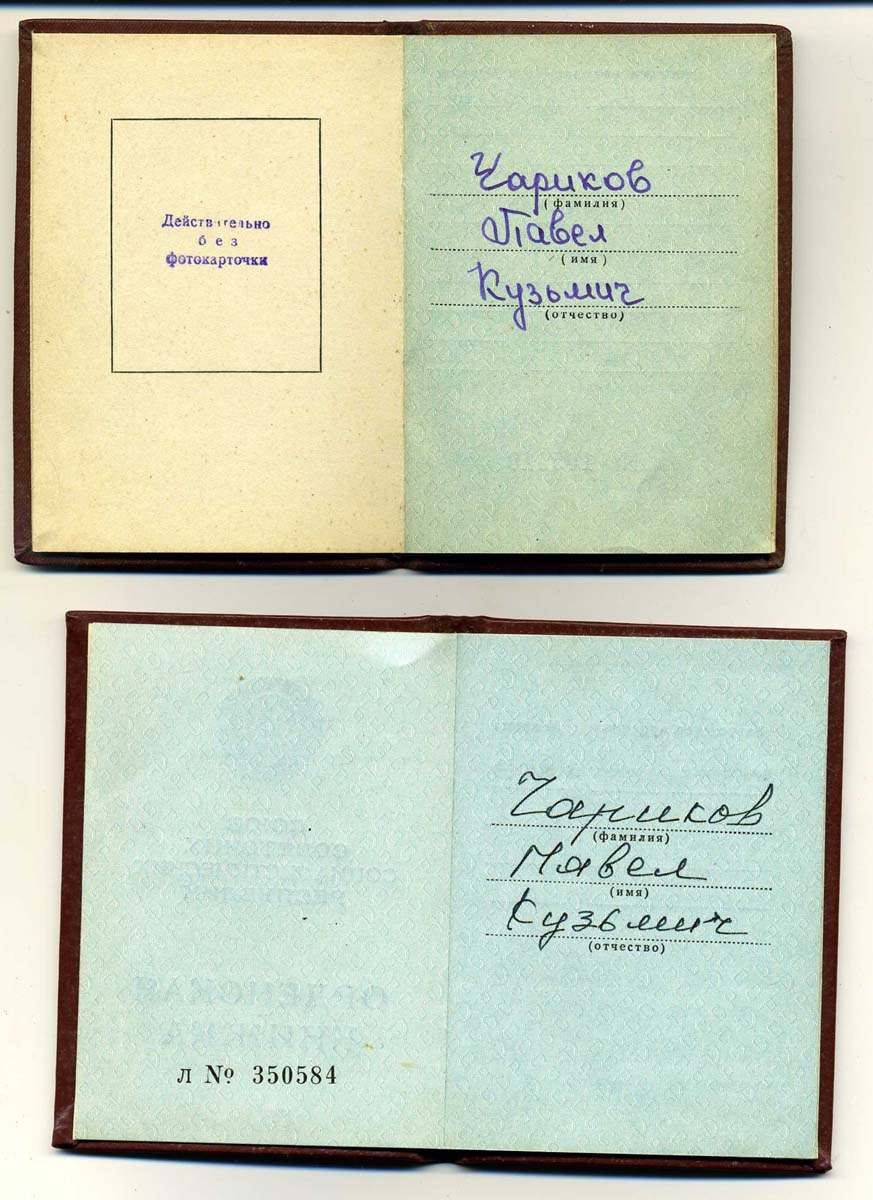 Действительно
без
фотокарточки
Чариков
(фамилия)
Павел
(имя)
Кузьмич
(отчество)
Чариков
(фамилия)
Павел
(имя)
Кузьмич
(отчество)
л № 350584